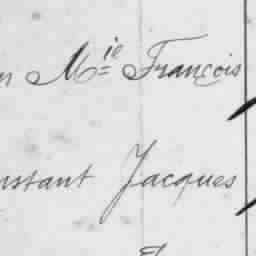 n Mie François
nstant Jacques